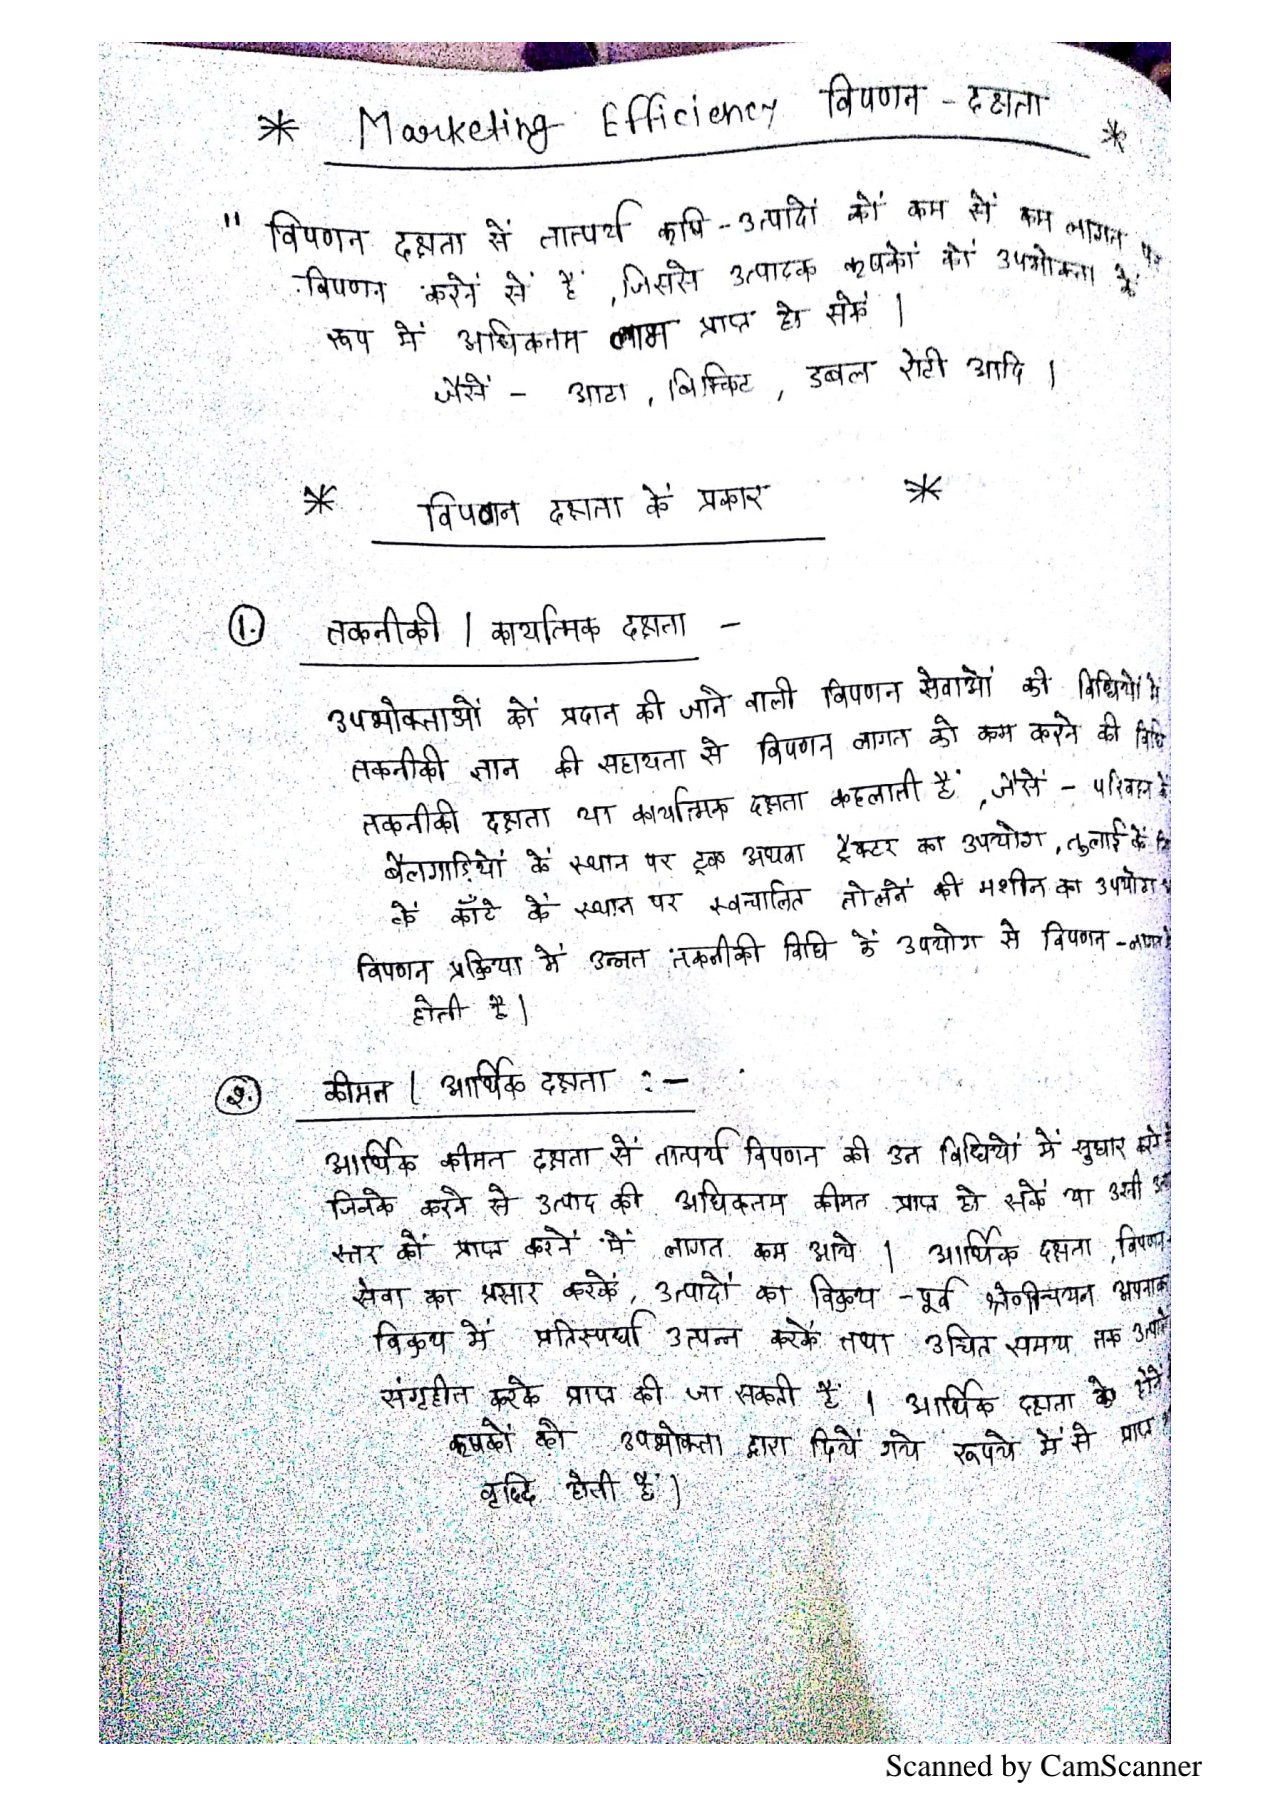 * Marketing Efficiency विपणन - दक्षता *
" विपणन दक्षता सें तात्पर्य कृषि - उत्पादों कों कम सें कम लागत पर
विपणन करनें सें हैं , जिससे उत्पादक कृषकों कों उपभोक्ता कें
रूप में अधिकतम लाभ प्राप्त हो सकें |
जैसें - आटा , बिस्किट , डबल रोटी आदि |
* विपणन दक्षता कें प्रकार *
1. तकनीकी | कार्यात्मिक दक्षता -
उपभोक्ताओं कों प्रदान की जाने वाली विपणन सेवाओं की विधियों में
तकनीकी ज्ञान की सहायता से विपणन लागत को कम करने की विधि
तकनीकी दक्षता या कार्यात्मिक दक्षता कहलाती हैं , जैसें - परिवहन में
बैलगाड़ियों कें स्थान पर ट्रक अथवा ट्रैक्टर का उपयोग , तुलाई कें
कें काँटे कें स्थान पर स्वचालित तोलनें की मशीन का उपयोग
विपणन प्रक्रिया में उन्नत तकनीकी विधि कें उपयोग से विपणन -
होती है |
2. कीमत | आर्थिक दक्षता : -
आर्थिक कीमत दक्षता सें तात्पर्य विपणन की उन विधियों में सुधार
जिनके करने से उत्पाद की अधिकतम कीमत प्राप्त हो सकें या उसी
स्तर कों प्राप्त करनें में लागत कम आये | आर्थिक दक्षता , विपणन
सेवा का प्रसार करकें , उत्पादों का विक्रय - पूर्व श्रेणीचयन अपनाकर
विक्रय में प्रतिस्पर्धा उत्पन्न करकें तथा उचित समय तक
संगृहीत करके प्राप्त की जा सकती हैं | आर्थिक दक्षता के होनें
कृषकों को उपभोक्ता द्वारा दियें गये रूपये में से प्राप्त
वृद्धि होती हैं |
Scanned by CamScanner